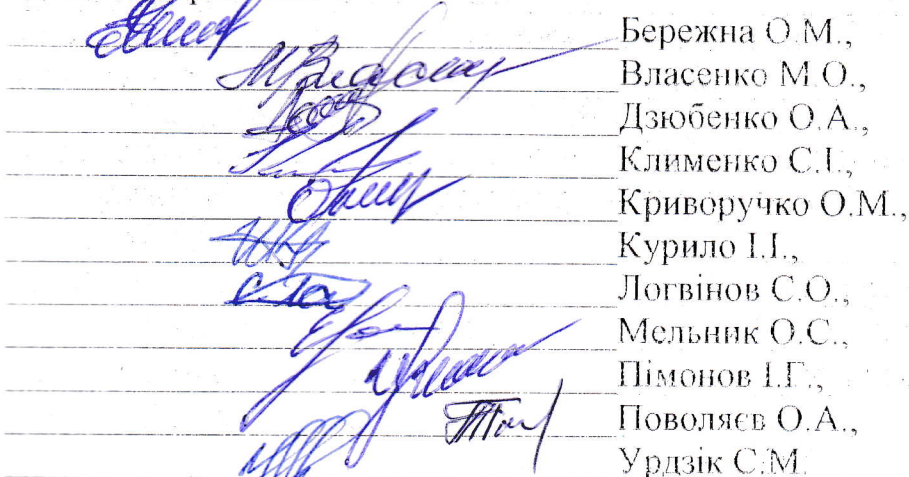 Бережна О.М.,
Власенко М.О.,
Дзюбенко О.А.,
Клименко С.І.,
Криворучко О.М.,
Курило І.І.,
Логвінов С.О.,
Мельник О.С.,
Пімонов І.Г.,
Поволяєв О.А.,
Урдзік С.М.